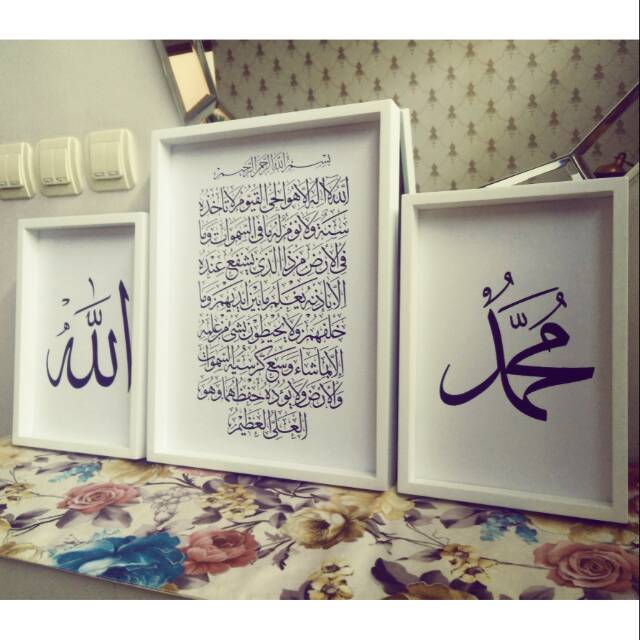 محمد
بسم الله الرحمن الرحيم
الله لا اله الا هو الحي القيوم لا تأخذه
سنة ولا نوم له ما في السموات وما
في الارض من ذا الذي يشفع عنده
الا باذنه يعلم ما بين ايديهم وما
خلفهم ولا يحيطون بشيء من علمه
الا بما شاء وسع كرسيه السموات
والارض ولا يؤده حفظهما وهو
العلي العظيم
الله